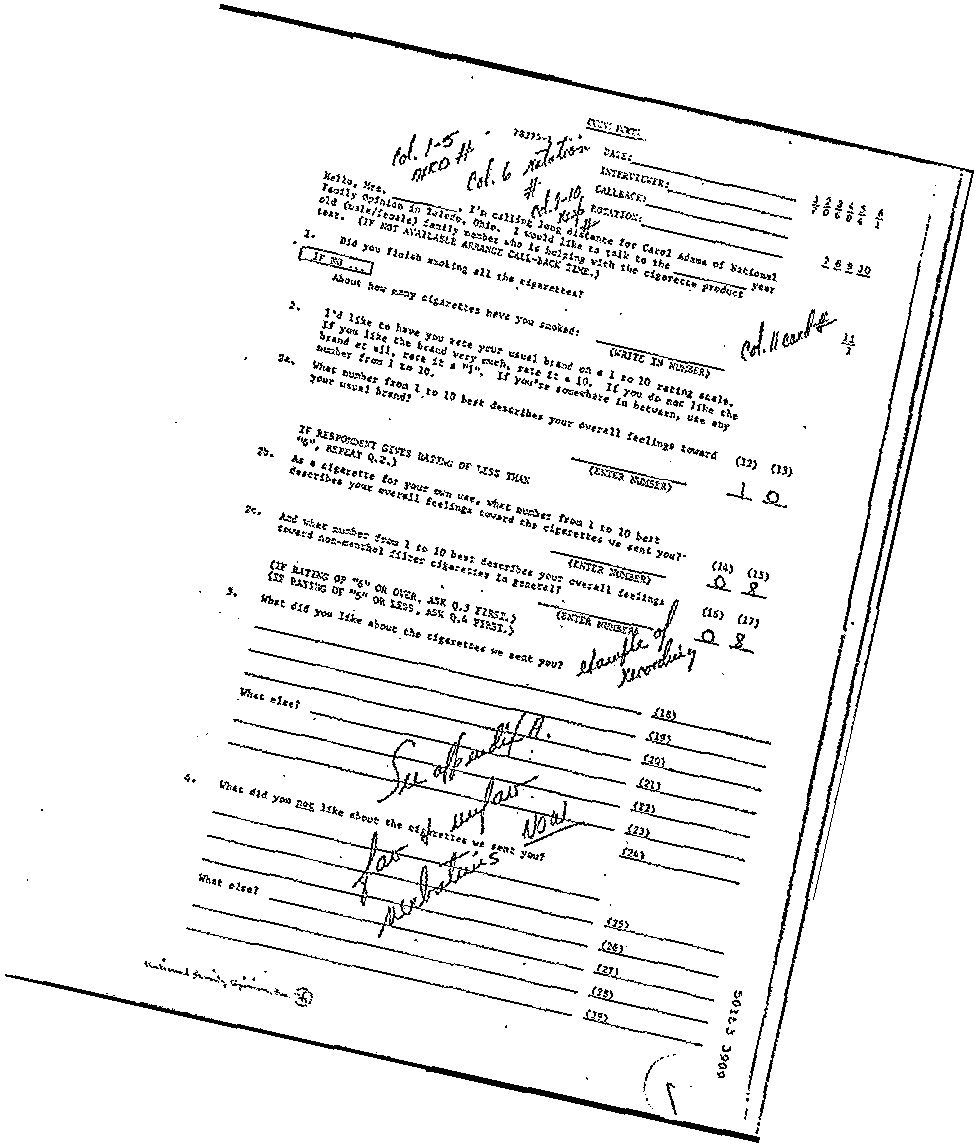 Col. 1-5
Col. 6 rotation
#
Col. 7-10
DATE:
INTERVIEWER:
CALLBACK:
ROTATION:
Hello, Mrs. , I'm calling long distance for Carol Adams of National
Family Opinion in Toledo, Ohio. I would like to talk to the year
old (male/female) family member who is helping with the cigarette product
test. (IF NOT AVAILABLE ARRANGE CALL-BACK TIME.)
1. Did you finish smoking all the cigarettes?
IF NO...
About how many cigarettes have you smoked:
(WRITE IN NUMBER)
Col. 11 card #
2. I'd like to have you rate your usual brand on a 1 to 10 rating scale.
If you like the brand very much, rate it a 10. If you do not like the
brand at all, rate it a "1". If you're somewhere in between, use any
number from 1 to 10.
2a. What number from 1 to 10 best describes your overall feelings toward
your usual brand?
(12) (13)
(ENTER NUMBER)
1 0
IF RESPONDENT GIVES RATING OF LESS THAN
"6", REPEAT Q.2.)
2b. As a cigarette for your own use, what number from 1 to 10 best
describes your overall feelings toward the cigarettes we sent you?
(14) (15)
(ENTER NUMBER)
0 8
2c. And what number from 1 to 10 best describes your overall feelings
toward non-menthol filter cigarettes in general?
(16) (17)
(ENTER NUMBER)
0 8
(IF RATING OF "6" OR OVER, ASK Q.3 FIRST.)
(IF RATING OF "5" OR LESS, ASK Q.4 FIRST.)
example of
recording
3. What did you like about the cigarettes we sent you?
(18)
(19)
What else?
(20)
(21)
(22)
(23)
(24)
See appendix A.
4. What did you not like about the cigarettes we sent you?
fav & unfav
verbatims
(25)
What else?
(26)
(27)
(28)
National Family Opinion, Inc.